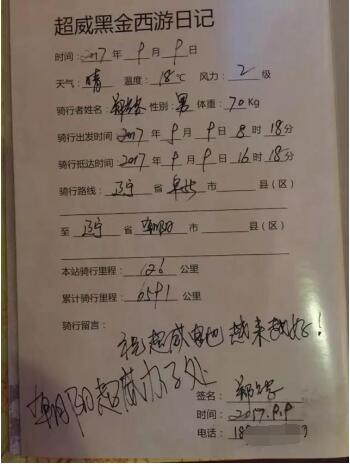 超威黑金西游日记
时间：2017 年 9 月 9 日
天气：晴 温度：18 ℃ 风力：2 级
骑行者姓名： 性别：男 体重：70 Kg
骑行出发时间：2017 年 9 月 9 日 8 时 18 分
骑行抵达时间：2017 年 9 月 9 日 16 时 18 分
骑行路线：辽宁 省 阜新 市 县（区）
至 辽宁 省 朝阳 市 县（区）
本站骑行里程：126 公里
累计骑行里程：6591 公里
骑行留言：
祝超威电池越来越好！
朝阳超威办事处
签名：
时间：2017.9.9
电话：18